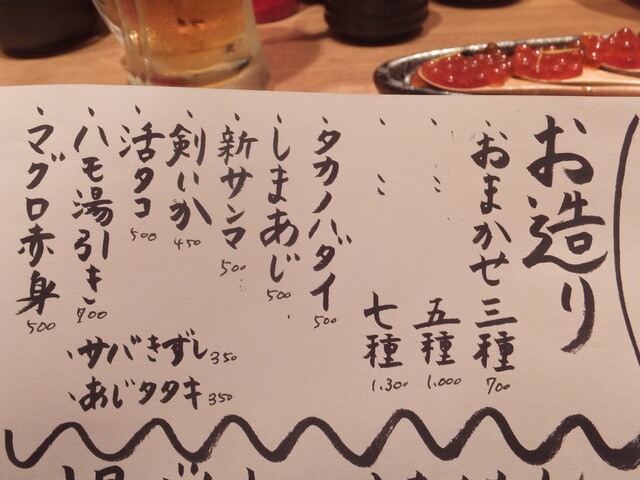 お造り
、おまかせ三種 700
、〃 五種 1,000
、〃 七種 1,300
、タカノハダイ 500
、しまあじ 500
、新サンマ 500
、剣いか 450
、活タコ 500
、ハモ湯引き 700
、マグロ赤身 500
、サバきずし 350
、あじタタキ 350